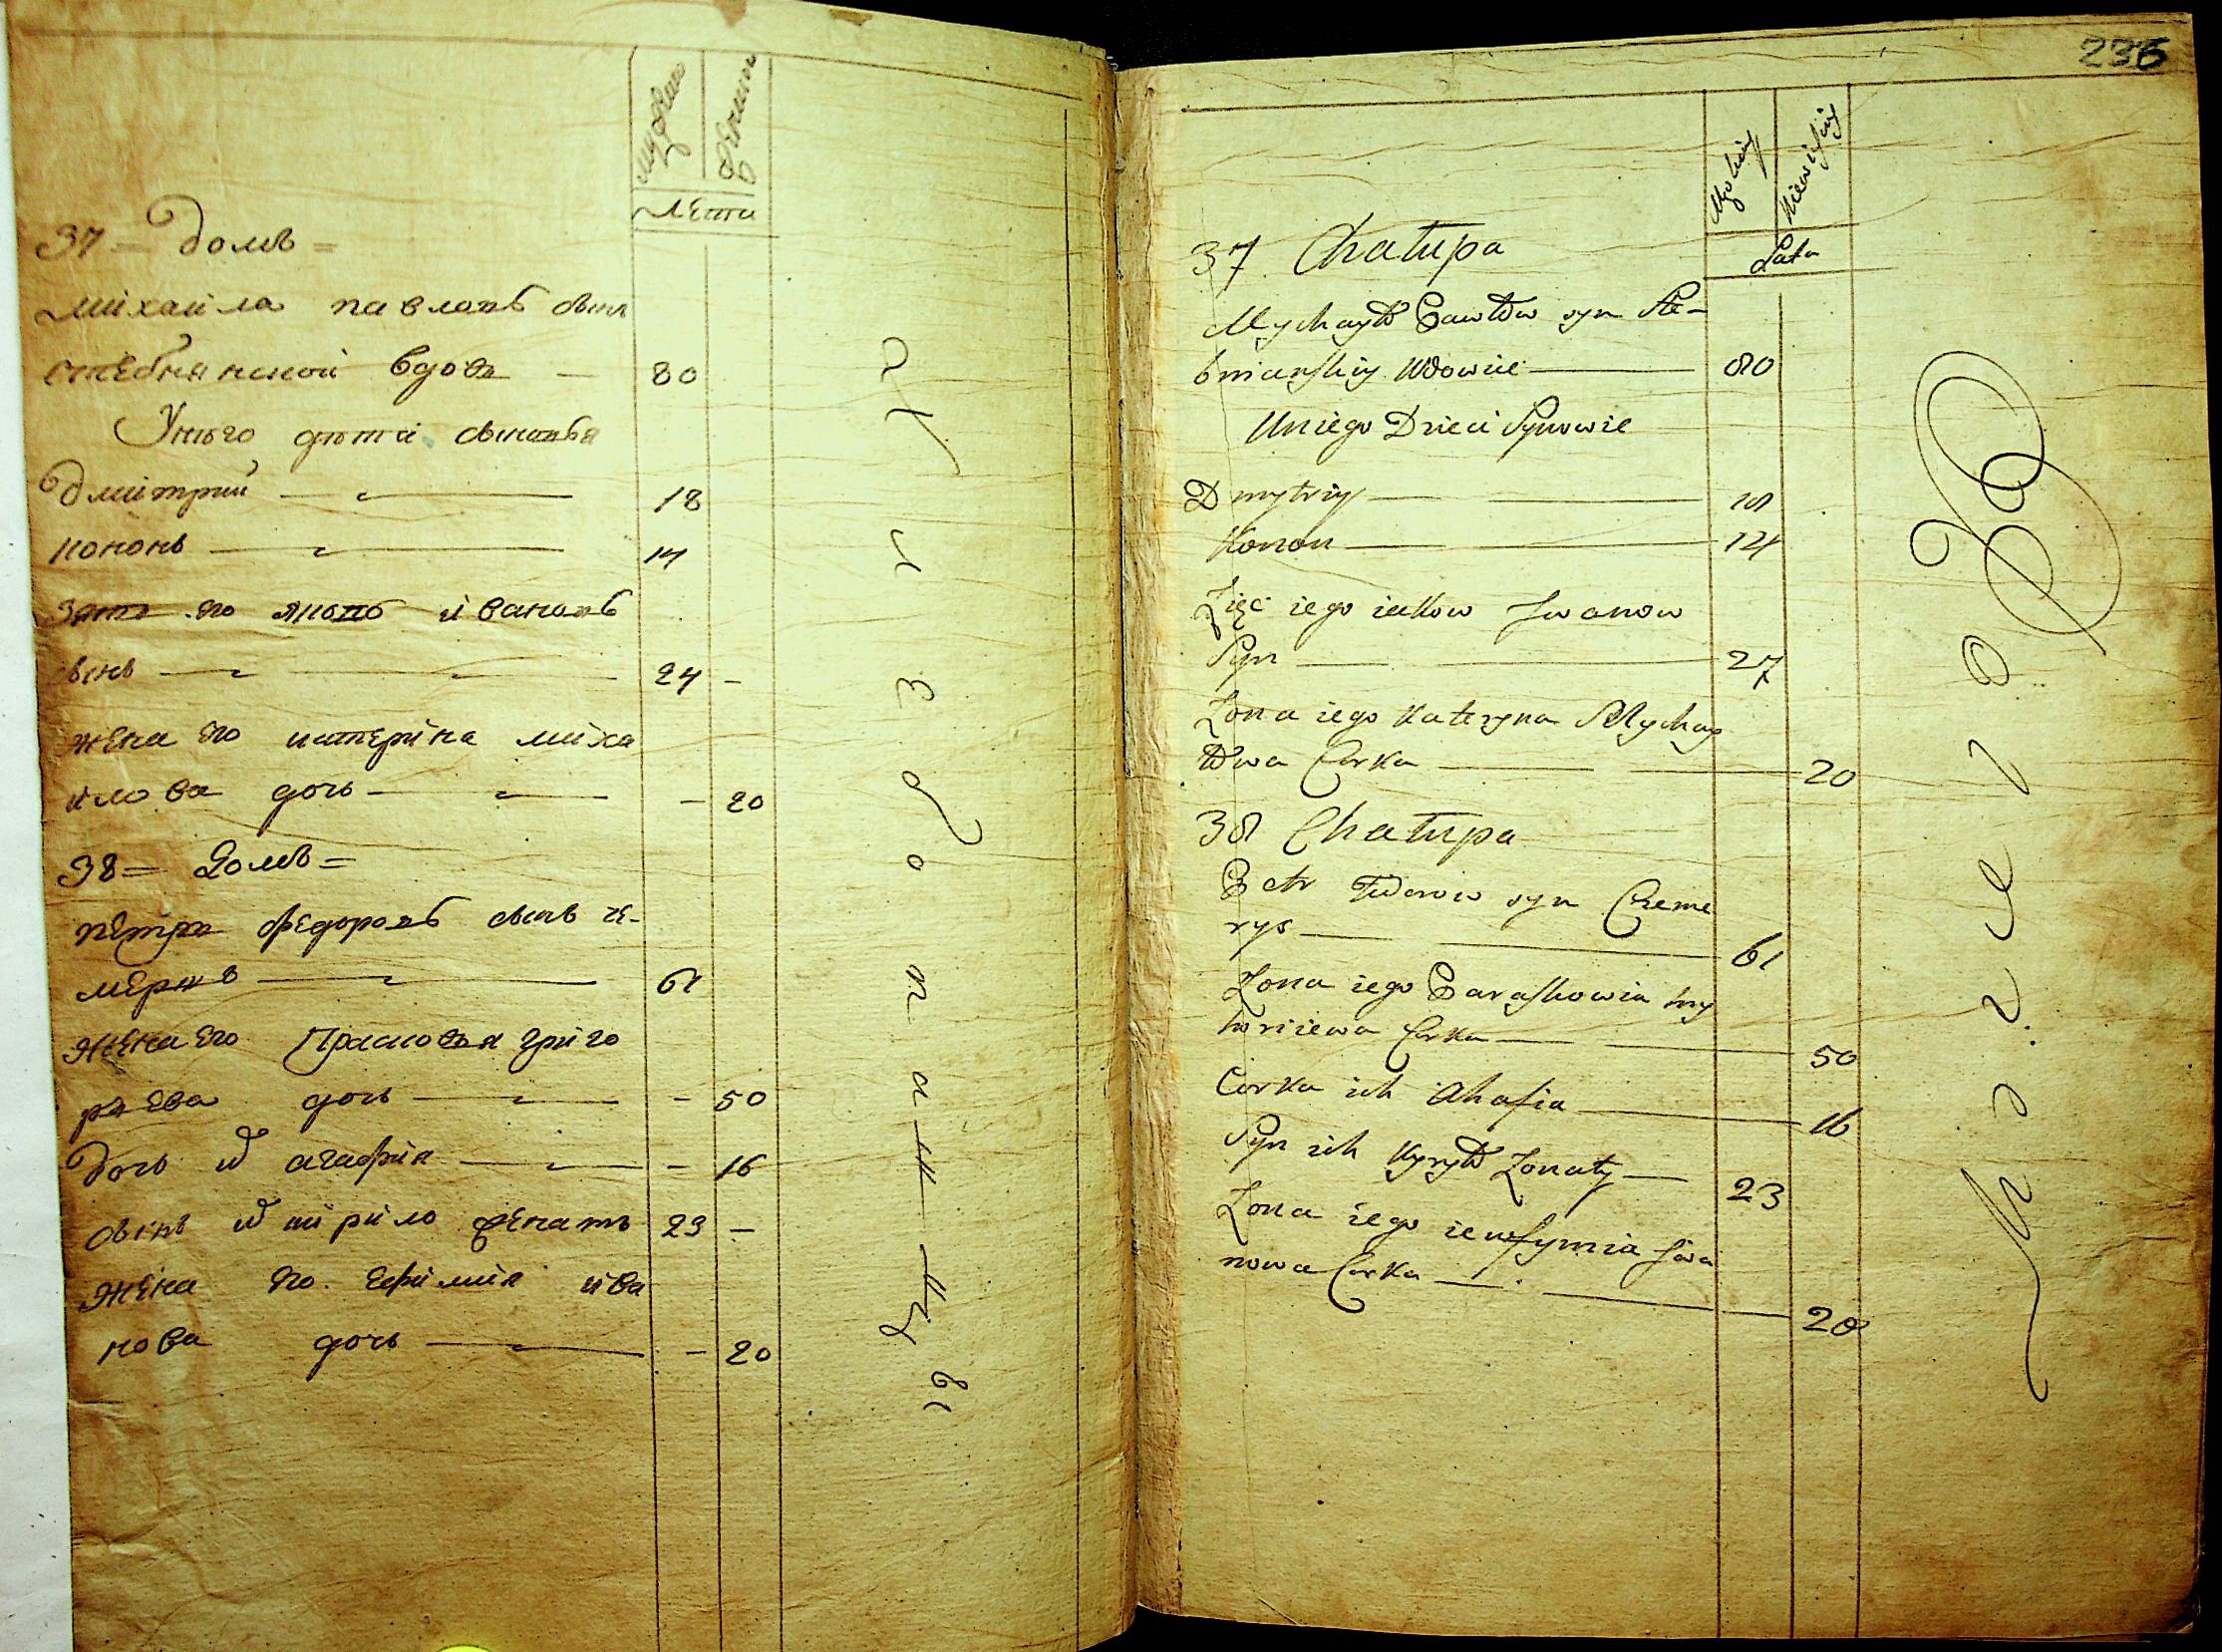 мужеска
женска
Лета
37 = Домъ =
михайла павловъ сынъ
стебнянской вдовъ — 80
У него дѣти сыновья
Дмитрий — 18
кононъ — 14
зять его яковъ ивановъ
сынъ — 24 –
жена его катерина миха
илова дочь — – 20
38 = Домъ =
петръ федоровъ сынъ че-
мерисъ — 61
жена его Прасковья григо
рьева дочь — – 50
Дочь их агафия — – 16
сынъ их кирило женатъ 23 –
жена его ефимия ива
нова дочь — – 20
236
Męskiey
Niewieściey
Lata
37 Chałupa
Mychayło Pawłow syn Ste-
bnianskiy Wdowiec — 80
U niego Dzieci Synowie
Dmytriy — 18
Konon — 14
Zięć iego iakow Iwanow
Syn — 27
Zona iego Kateryna Mychay
łowa Corka — 20
38 Chałupa
Petr Fedorow syn Czeme
rys — 61
Zona iego Paraskowia Hry
horiiewa Corka — 50
Corka ich Ahafia — 16
Syn ich Kyryło Zonaty — 23
Zona iego ieufymia Iwa
nowa Corka — 20